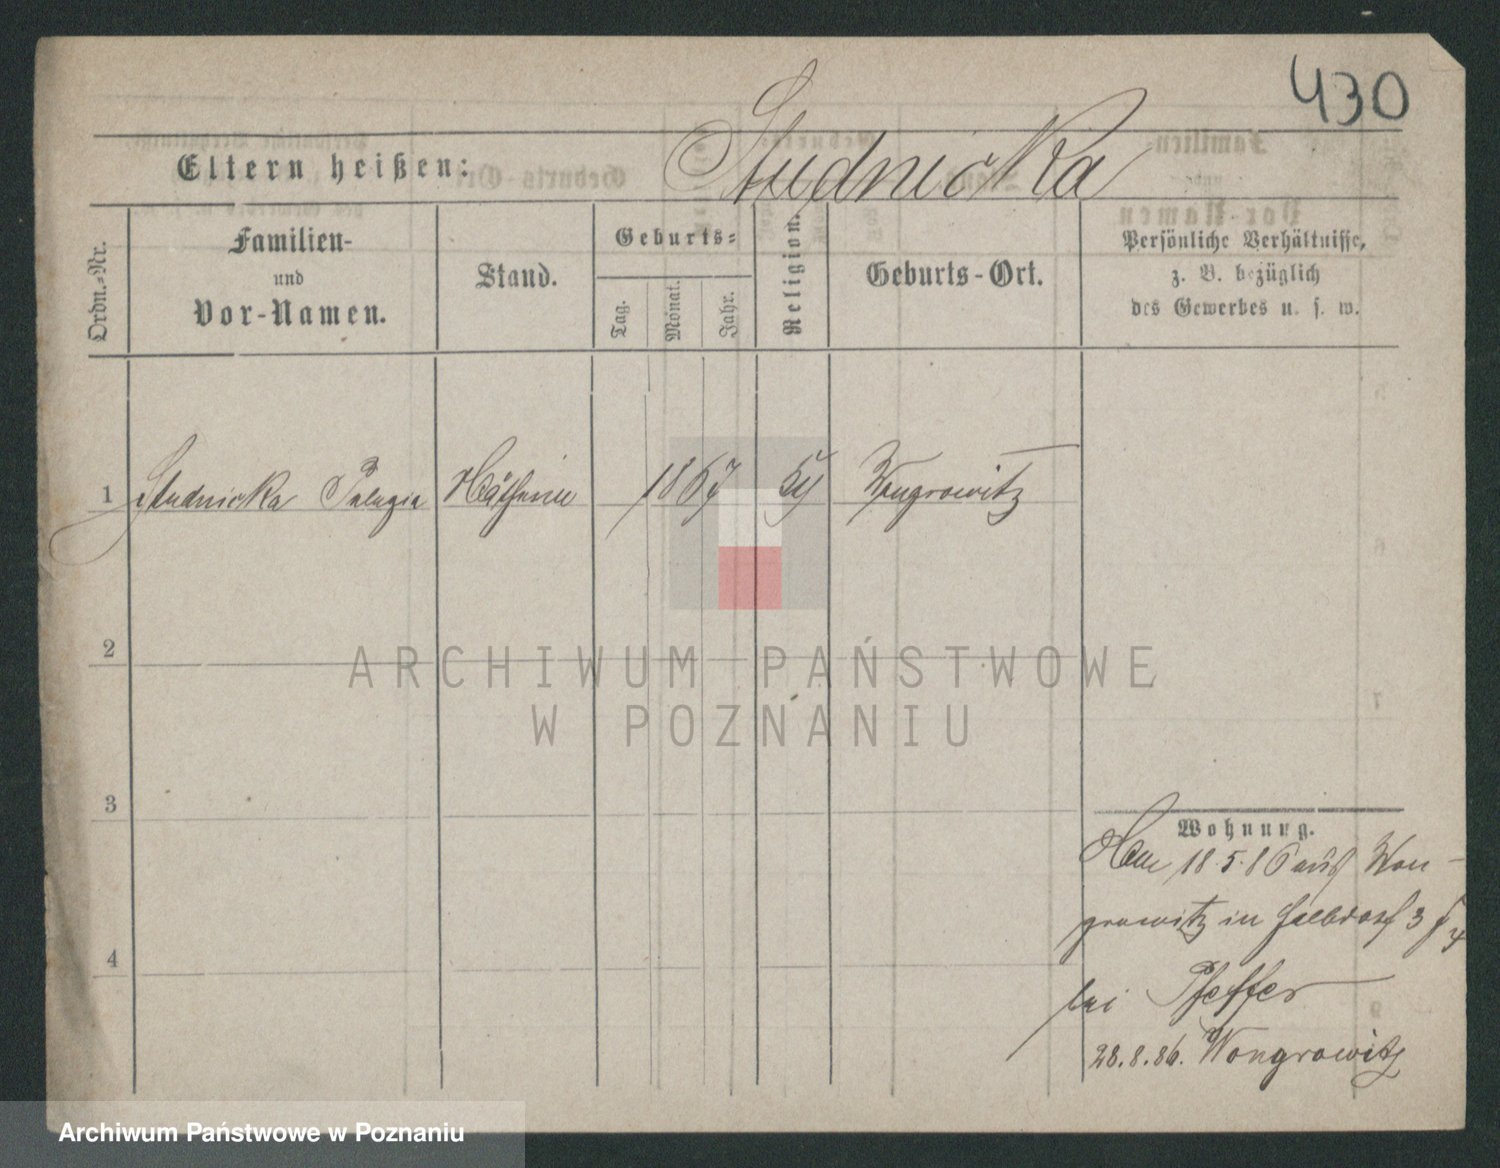 430
Studnicka
Eltern heißen:
Ordn.-Nr.
Familien-
und
Vor-Namen.
Stand.
Geburts-
Tag.
Monat.
Jahr.
Religion.
Geburts-Ort.
Persönliche Verhältnisse,
z. B. bezüglich
des Gewerbes u. s. w.
1 Studnicka Pelagia 1867 Wongrowitz
2
3
4
Wohnung.
18.5.86 aus Won-
growitz in Halbdorf 3
bei Pfeffer
28.8.86. Wongrowitz
ARCHIWUM PAŃSTWOWE
W POZNANIU
Archiwum Państwowe w Poznaniu